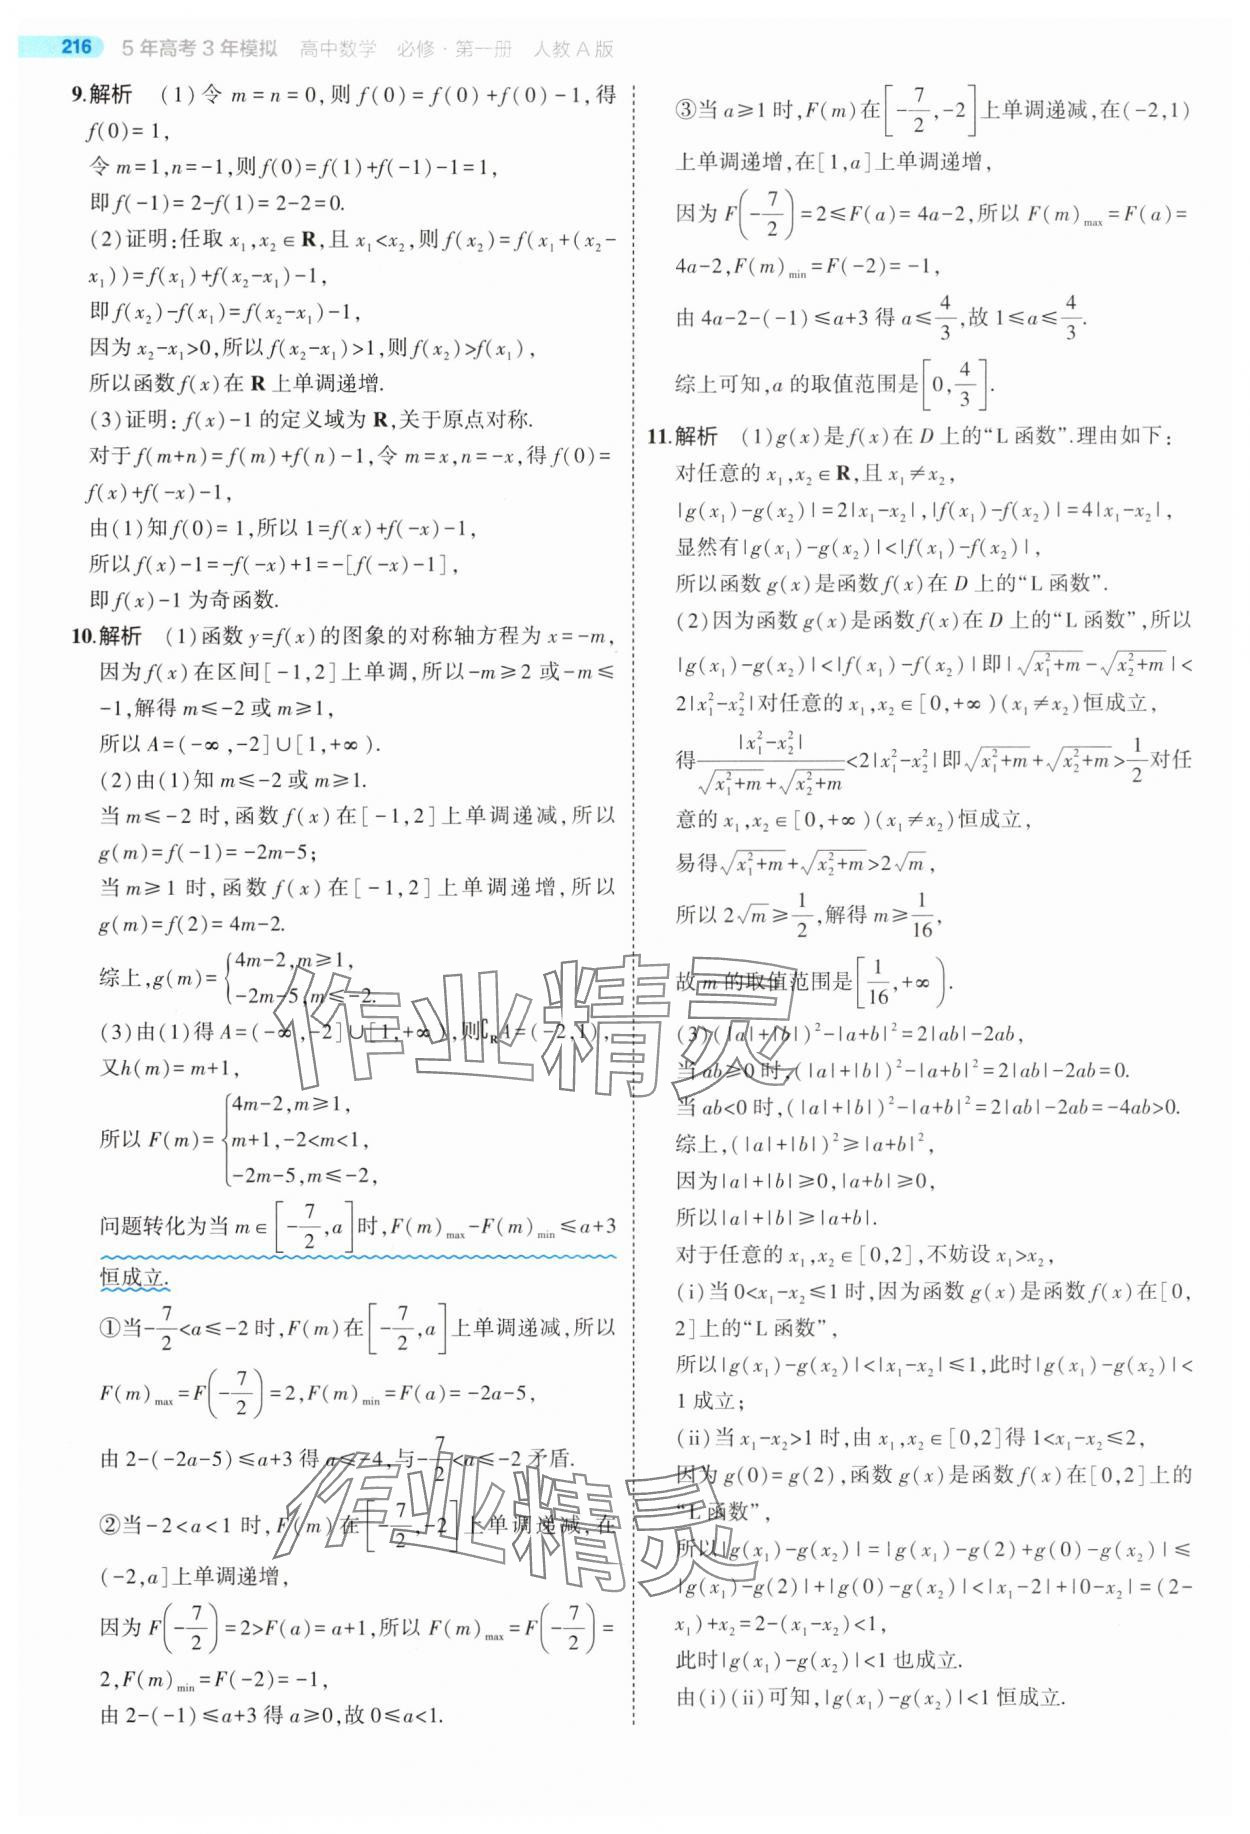 216 5年高考3年模拟 高中数学 必修·第一册 人教A版
9.解析 (1)令 m=n=0,则 f(0)=f(0)+f(0)-1,得
f(0)=1,
令 m=1,n=-1,则 f(0)=f(1)+f(-1)-1=1,
即 f(-1)=2-f(1)=2-2=0.
(2)证明:任取 x₁,x₂∈R,且 x₁<x₂,则 f(x₂)=f(x₁+(x₂-
x₁))=f(x₁)+f(x₂-x₁)-1,
即 f(x₂)-f(x₁)=f(x₂-x₁)-1,
因为 x₂-x₁>0,所以 f(x₂-x₁)>1,则 f(x₂)>f(x₁),
所以函数 f(x)在 R 上单调递增.
(3)证明: f(x)-1 的定义域为 R,关于原点对称.
对于 f(m+n)=f(m)+f(n)-1,令 m=x,n=-x,得 f(0)=
f(x)+f(-x)-1,
由(1)知 f(0)=1,所以 1=f(x)+f(-x)-1,
所以 f(x)-1=-f(-x)+1=-[f(-x)-1],
即 f(x)-1 为奇函数.
10.解析 (1)函数 y=f(x)的图象的对称轴方程为 x=-m,
因为 f(x)在区间[-1,2]上单调,所以-m≥2 或-m≤
-1,解得 m≤-2 或 m≥1,
所以 A=(-∞,-2]∪[1,+∞).
(2)由(1)知 m≤-2 或 m≥1.
当 m≤-2 时,函数 f(x)在[-1,2]上单调递减,所以
g(m)=f(-1)=-2m-5;
当 m≥1 时,函数 f(x)在[-1,2]上单调递增,所以
g(m)=f(2)=4m-2.
综上,g(m)={4m-2,m≥1,
-2m-5,m≤-2.
(3)由(1)得 A=(-∞,-2]∪[1,+∞),则∁RA=(-2,1),
又h(m)=m+1,
所以 F(m)={4m-2,m≥1,
m+1,-2<m<1,
-2m-5,m≤-2,
问题转化为当 m∈[-7/2,a]时,F(m)max-F(m)min≤a+3
恒成立.
①当-7/2<a≤-2 时,F(m)在[-7/2,a]上单调递减,所以
F(m)max=F(-7/2)=2,F(m)min=F(a)=-2a-5,
由 2-(-2a-5)≤a+3 得 a≤-4,与-7/2<a≤-2 矛盾.
②当-2<a<1 时,F(m)在[-7/2,-2]上单调递减,在
(-2,a]上单调递增,
因为 F(-7/2)=2>F(a)=a+1,所以 F(m)max=F(-7/2)=
2,F(m)min=F(-2)=-1,
由 2-(-1)≤a+3 得 a≥0,故 0≤a<1.
③当 a≥1 时,F(m)在[-7/2,-2]上单调递减,在(-2,1)
上单调递增,在[1,a]上单调递增,
因为 F(-7/2)=2≤F(a)=4a-2,所以 F(m)max=F(a)=
4a-2,F(m)min=F(-2)=-1,
由 4a-2-(-1)≤a+3 得 a≤4/3,故 1≤a≤4/3.
综上可知,a 的取值范围是[0,4/3].
11.解析 (1)g(x)是 f(x)在 D 上的“L 函数”.理由如下:
对任意的 x₁,x₂∈R,且 x₁≠x₂,
|g(x₁)-g(x₂)|=2|x₁-x₂|,|f(x₁)-f(x₂)|=4|x₁-x₂|,
显然有|g(x₁)-g(x₂)|<|f(x₁)-f(x₂)|,
所以函数 g(x)是函数 f(x)在 D 上的“L 函数”.
(2)因为函数 g(x)是函数 f(x)在 D 上的“L 函数”,所以
|g(x₁)-g(x₂)|<|f(x₁)-f(x₂)|即|√(x₁²+m)-√(x₂²+m)|<
2|x₁²-x₂²|对任意的 x₁,x₂∈[0,+∞)(x₁≠x₂)恒成立,
得|x₁²-x₂²|/(√(x₁²+m)+√(x₂²+m))<2|x₁²-x₂²|即√(x₁²+m)+√(x₂²+m)>1/2对任
意的 x₁,x₂∈[0,+∞)(x₁≠x₂)恒成立,
易得√(x₁²+m)+√(x₂²+m)>2√m,
所以 2√m≥1/2,解得 m≥1/16,
故 m 的取值范围是[1/16,+∞).
(3)(|a|+|b|)²-|a+b|²=2|ab|-2ab,
当 ab≥0 时,(|a|+|b|)²-|a+b|²=2|ab|-2ab=0.
当 ab<0 时,(|a|+|b|)²-|a+b|²=2|ab|-2ab=-4ab>0.
综上,(|a|+|b|)²≥|a+b|²,
因为|a|+|b|≥0,|a+b|≥0,
所以|a|+|b|≥|a+b|.
对于任意的 x₁,x₂∈[0,2],不妨设 x₁>x₂,
(i)当 0<x₁-x₂≤1 时,因为函数 g(x)是函数 f(x)在[0,
2]上的“L 函数”,
所以|g(x₁)-g(x₂)|<|x₁-x₂|≤1,此时|g(x₁)-g(x₂)|<
1 成立;
(ii)当 x₁-x₂>1 时,由 x₁,x₂∈[0,2]得 1<x₁-x₂≤2,
因为 g(0)=g(2),函数 g(x)是函数 f(x)在[0,2]上的
“L 函数”,
所以|g(x₁)-g(x₂)|=|g(x₁)-g(2)+g(0)-g(x₂)|≤
|g(x₁)-g(2)|+|g(0)-g(x₂)|<|x₁-2|+|0-x₂|=(2-
x₁)+x₂=2-(x₁-x₂)<1,
此时|g(x₁)-g(x₂)|<1 也成立.
由(i)(ii)可知,|g(x₁)-g(x₂)|<1 恒成立.
作业精灵
作业精灵